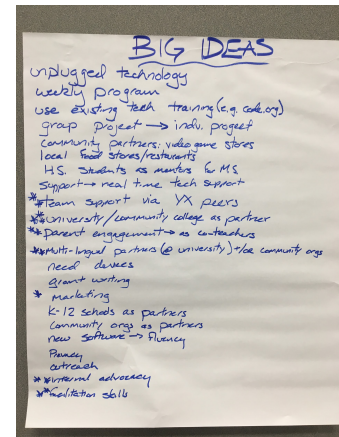 BIG IDEAS
unplugged technology
weekly program
use existing tech training (e.g. code.org)
group project → indv. project
community partners: video game stores
local food stores/restaurants
H.S. students as mentors for M.S.
Support → real time tech support
**team support via YX peers
**university/community college as partner
**Parent engagement → as coteachers
**Multi-lingual partners (@ university) +/or community orgs
need devices
grant writing
* marketing
K-12 schools as partners
Community orgs as partners
new software → Fluency
Privacy
outreach
**internal advocacy
**facilitation skills